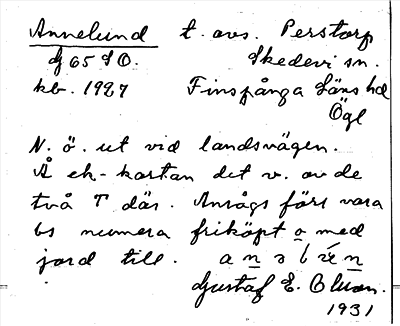 Annelund t. avs. Perstorp
dj 65 SO. Skedevi sn.
kb. 1927 Finspånga Läns hd
Ögl
N. ö. ut vid landsvägen.
Å ek-kartan det v. av de
två T där. Ansågs förr vara
bs numera friköpt o med
jord till.
Gustaf E. Olsson.
1931